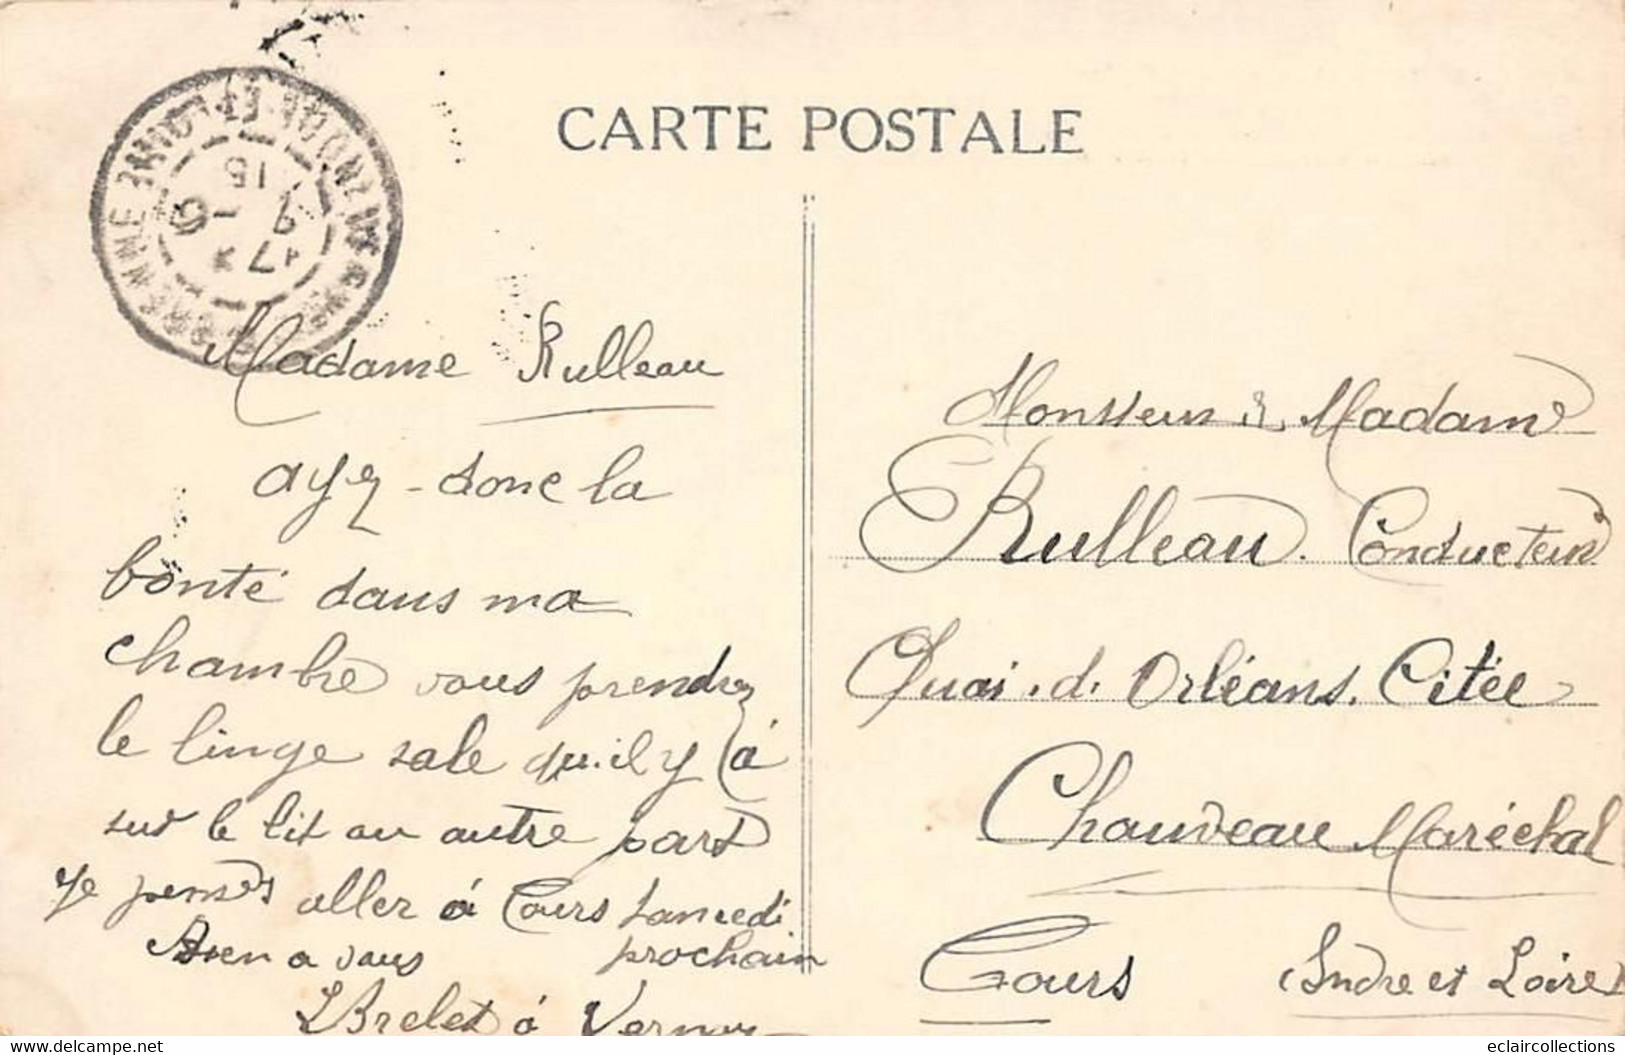 CARTE POSTALE
15
9
17 * 6
Madame Rulleau
ayez - donc la
bonté dans ma
chambre vous prendrez
le linge sale qu'il y a
sur le lit ou autre part
Je penses aller à Tours samedi
prochain
Bien a vous
LBrelet à Vernou
Monsieur & Madame
Rulleau. Conducteur
Quai. d. Orléans. Citée
Chauveau Maréchal
Tours (Indre et Loire)
https://www.delcampe.net
eclaircollections